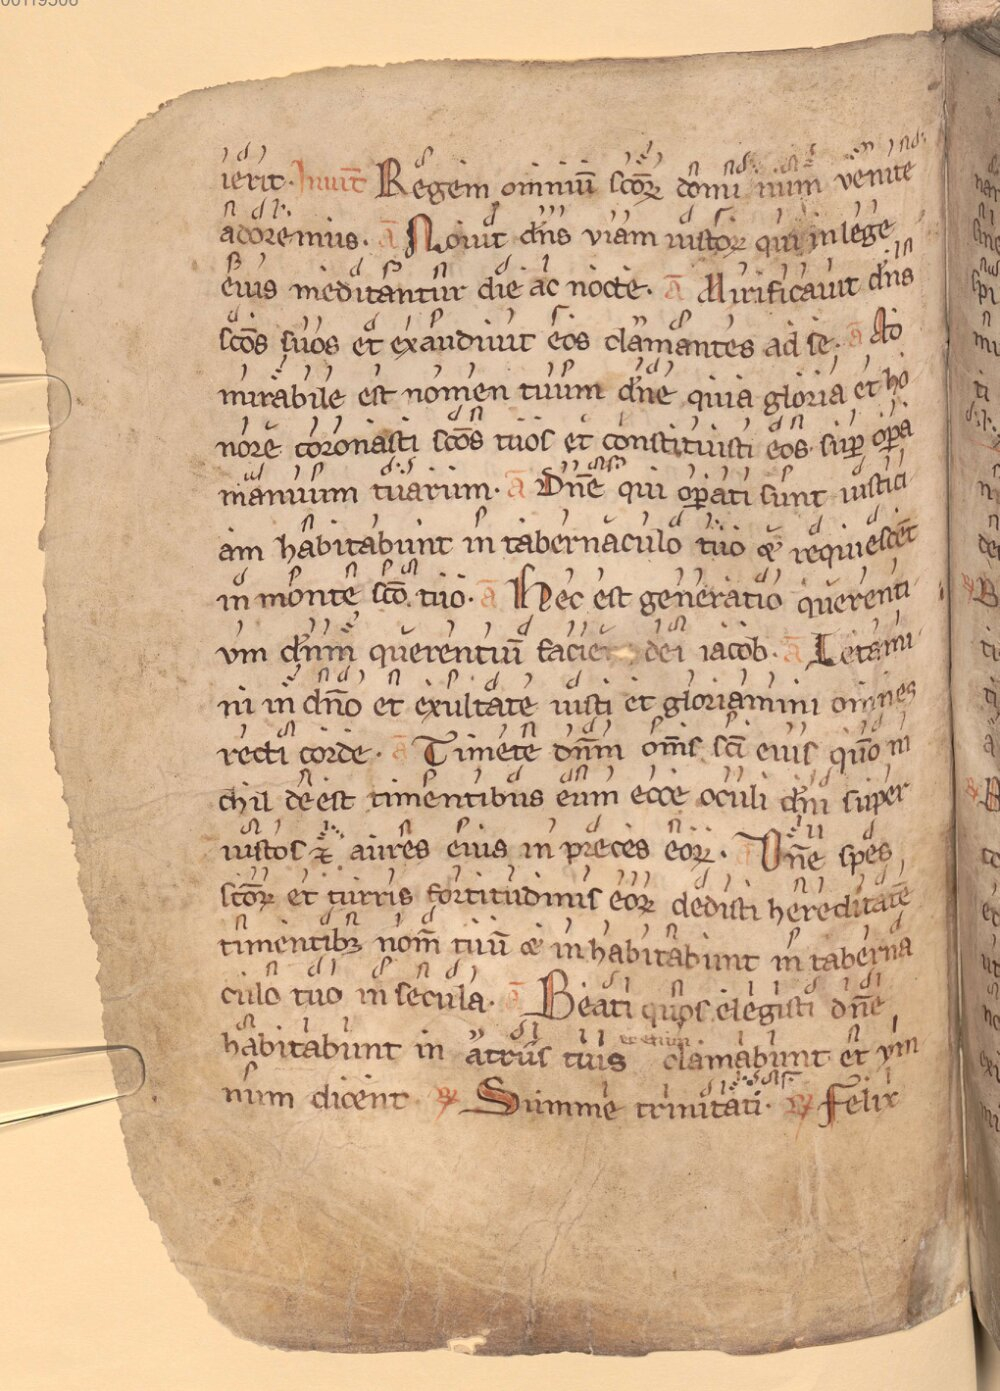 ierit. Inuit̄ Regem omniū sc̄oꝝ domi num venite
adoremus. ā Nouit dn̄s viam iustoꝝ qui in lege
eius meditantur die ac nocte. ā Mirificauit dn̄s
sc̄os suos et exaudiuit eos clamantes ad se. ā Ad
mirabile est nomen tuum dn̄e quia gloria et ho
nore coronasti sc̄os tuos et constituisti eos sup̄ op̄a
manuum tuarum. ā Dn̄e qui op̄ati sunt iustici
am habitabunt in tabernaculo tuo et requiescēt
in monte sc̄o tuo. ā Hec est generatio querenti
vm dn̄um querentiū facie dei iacob. ā Letami
ni in dn̄o et exultate iusti et gloriamini omnes
recti corde. ā Timete dn̄m om̄s sc̄i eius qūo ni
chil deest timentibus eum ecce oculi dn̄i super
iustos et aures eius in preces eoꝝ. ā Dn̄e spes
sc̄oꝝ et turris fortitudinis eoꝝ dedisti hereditatē
timentibꝫ nom̄ tuū et inhabitabunt in taberna
culo tuo in secula. ā Beati quos elegisti dn̄e
habitabunt in atriis tuis clamabunt et ym
num dicent ℟ Summe trinitati. ℟ Felix